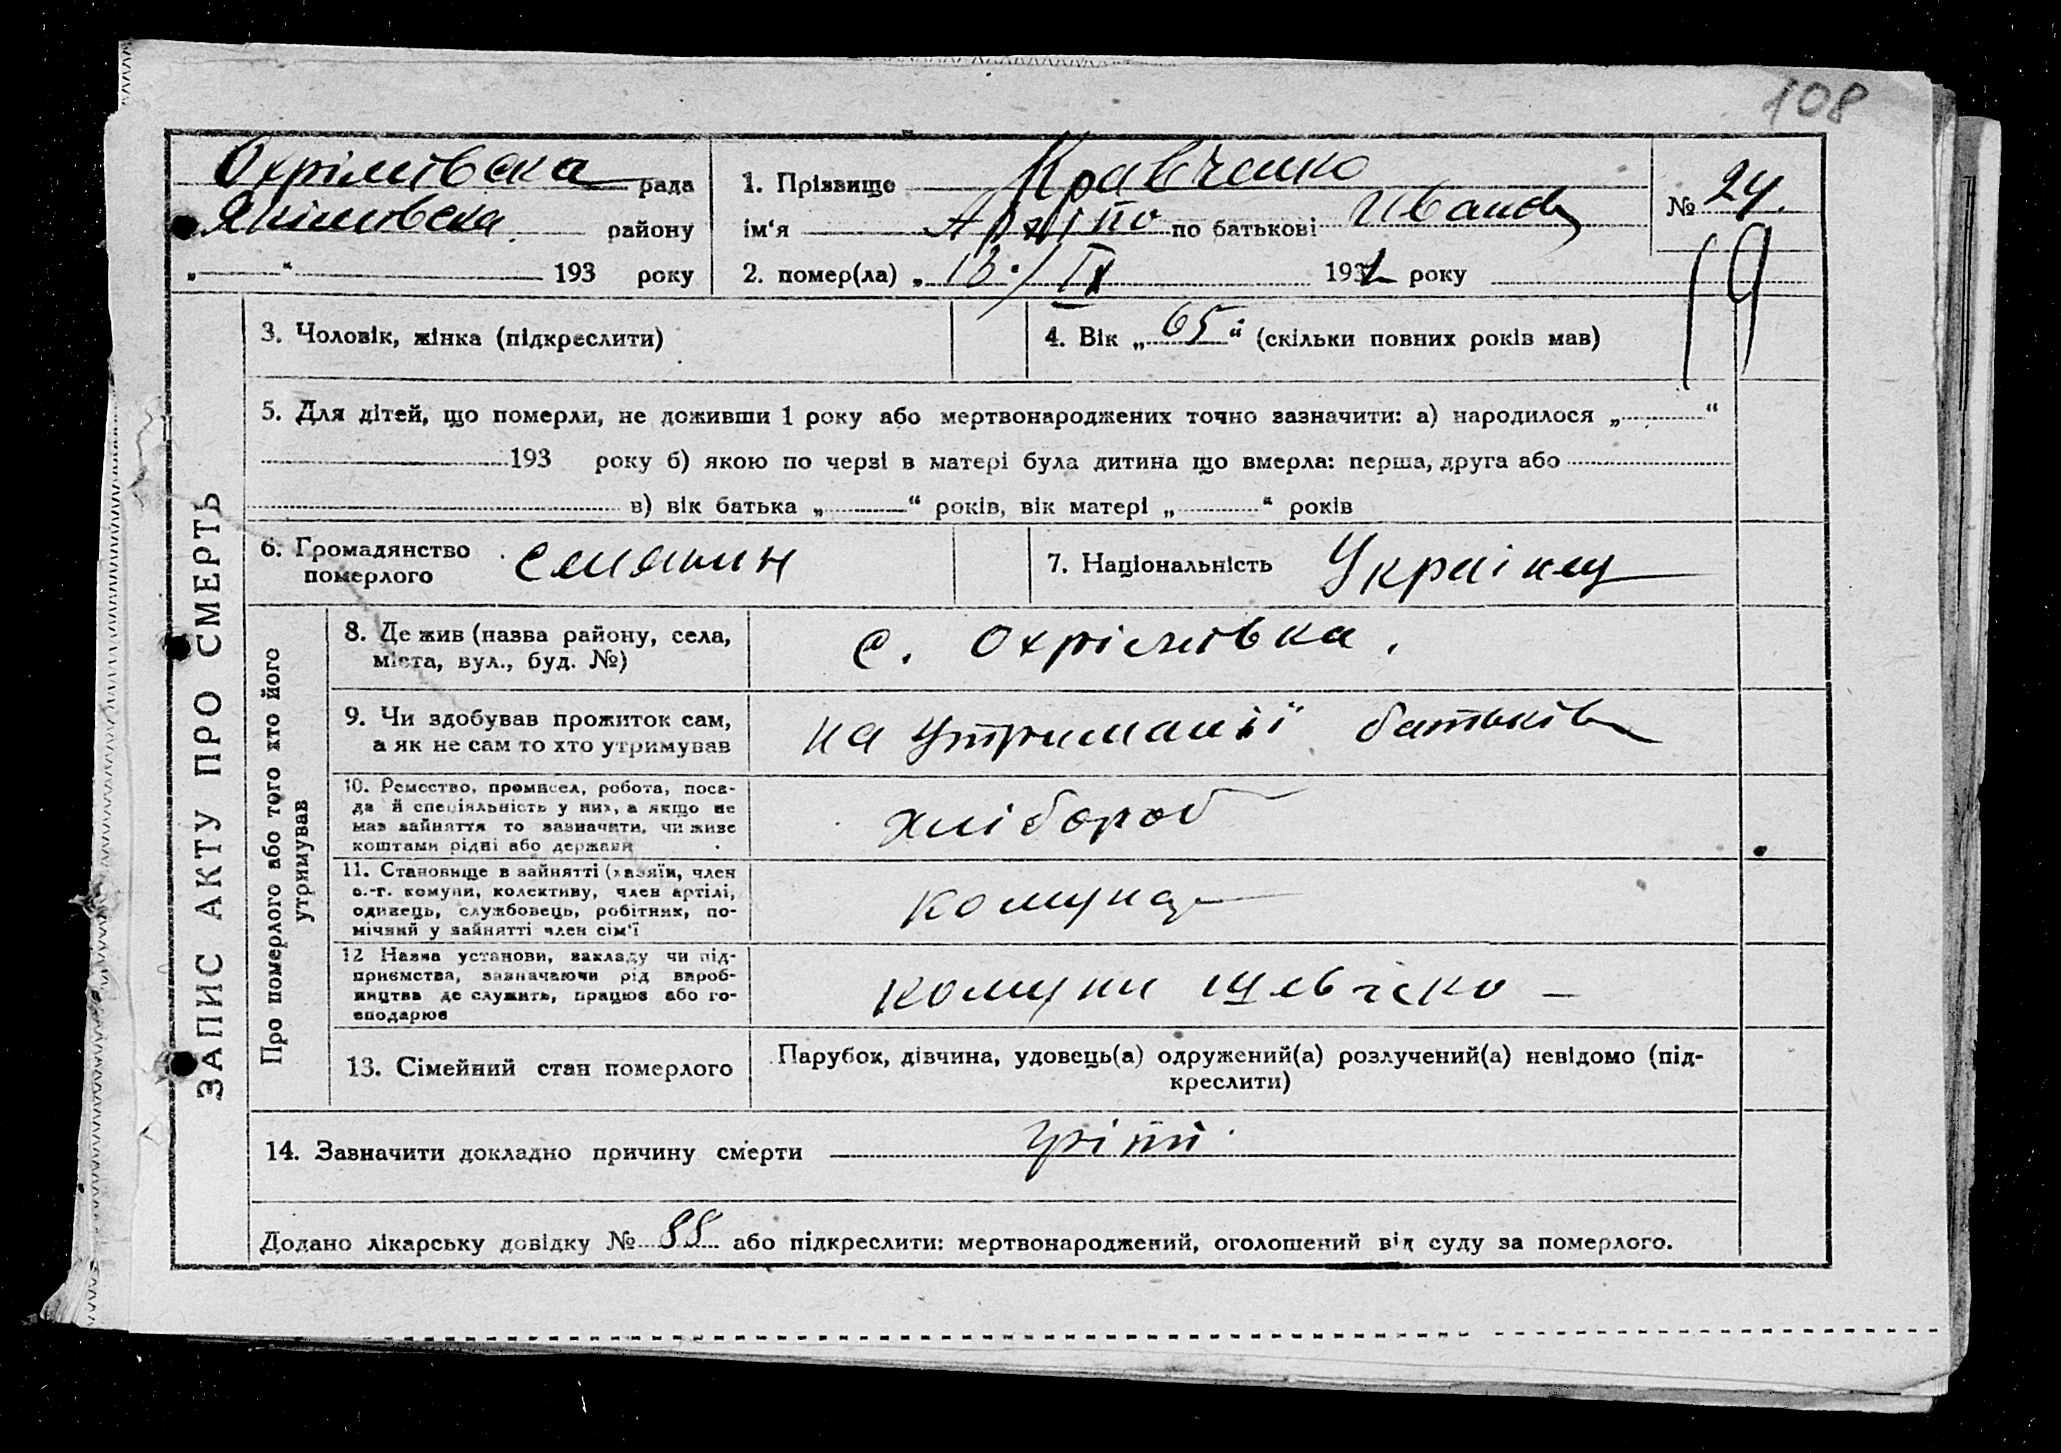 108
Охрімівска рада
Якимовска району
„ “ 193 року
1. Прізвище Кравченко
ім'я Архіпо по батькові Иванов
2. помер(ла) „ 13./IX 1932 року
№ 24.
19
ЗАПИС АКТУ ПРО СМЕРТЬ
3. Чоловік, жінка (підкреслити)
4. Вік „ 65 “ (скільки повних років мав)
5. Для дітей, що померли, не доживши 1 року або мертвонароджених точно зазначити: а) народилося „ “
193 року б) якою по черзі в матері була дитина що вмерла: перша, друга або
в) вік батька „ “ років, вік матері „ “ років
6. Громадянство
померлого
селянин
7. Національність Українц
Про померлого або того хто його
утримував
8. Де жив (назва району, села,
міста, вул., буд. №)
с. Охрімівка.
9. Чи здобував прожиток сам,
а як не сам то хто утримував
на утриманії батьків
10. Ремество, промисел, робота, поса-
да й спеціяльність у них, а якщо не
мав зайняття то зазначити, чи живе
коштами рідні або держави
хлібороб
11. Становище в зайнятті (хазяїн, член
с.-г. комуни, колективу, член артілі,
одинець, службовець, робітник, по-
мічний у зайнятті член сім'ї
комуна
12 Назва установи, закладу чи під-
приємства, зазначаючи рід вироб-
ництва де служить, працює або го-
сподарює
комуни Шевченко
13. Сімейний стан померлого
Парубок, дівчина, удовець(а) одружений(а) розлучений(а) невідомо (під-
креслити)
14. Зазначити докладно причину смерти гріпп.
Додано лікарську довідку № 88 або підкреслити: мертвонароджений, оголошений від суду за померлого.